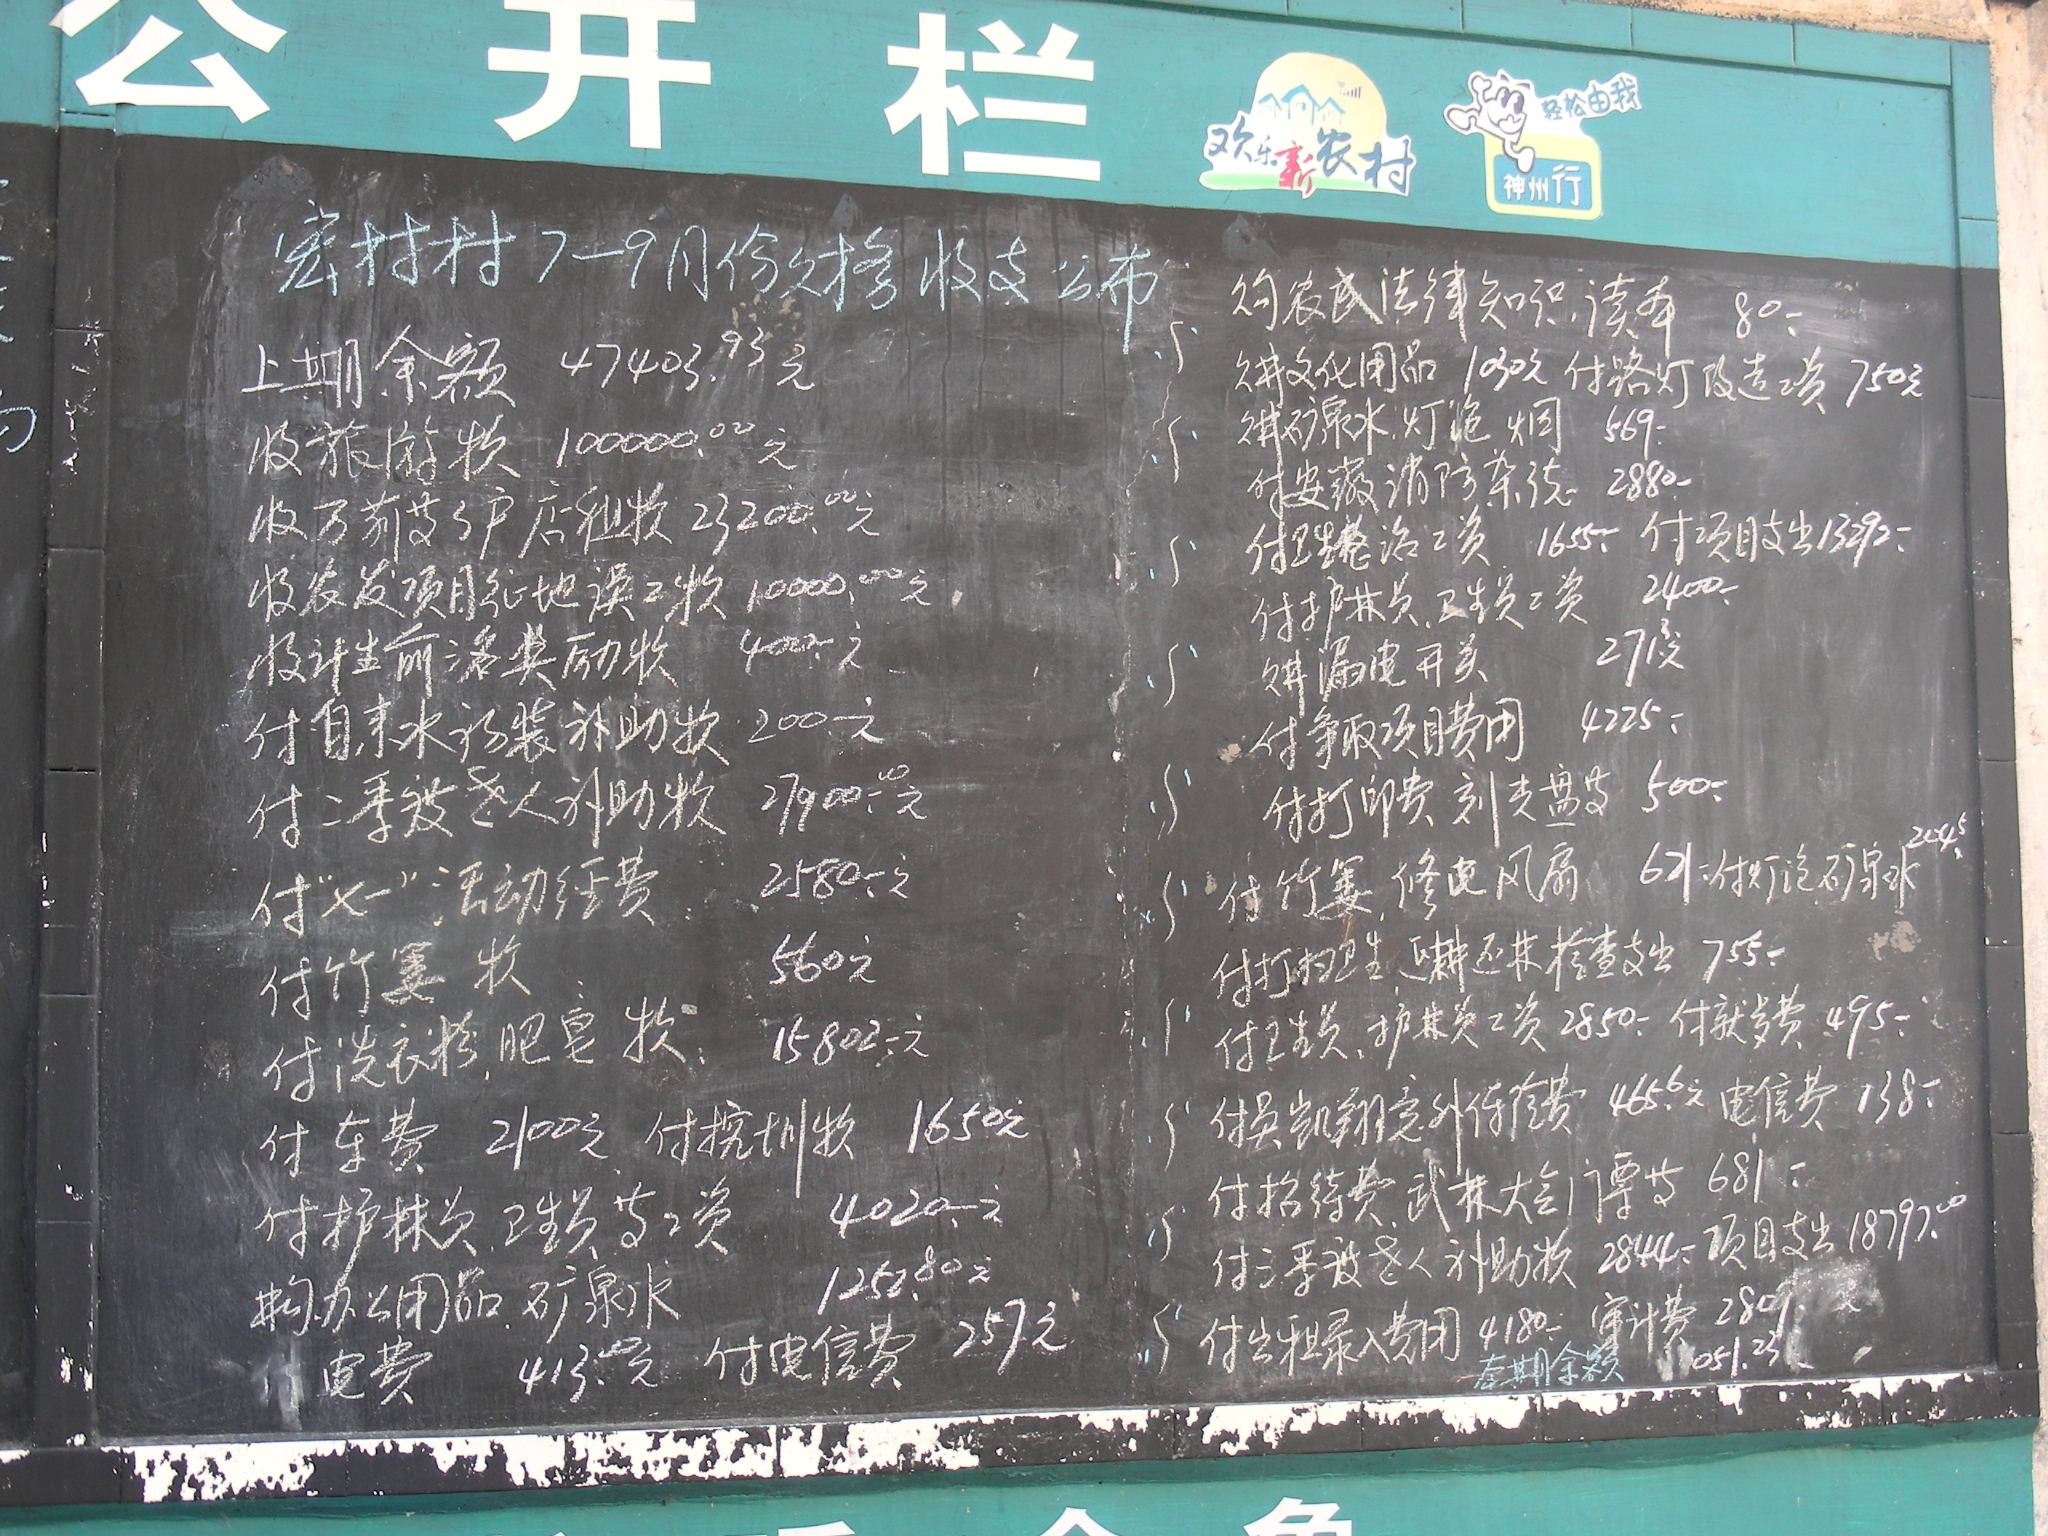 公开栏
欢乐新农村
轻松由我
神州行
村村7—9月份财务收支公布
上期余额 47403.93元
收旅游款 100000.00元
收万菊芬3户店租款23200.00元
收农发项目征地误工款10000.00元
收计生前奖励款 400元
付自来水改装补助款200元
付二季度老人补助款 27900元
付"七一"活动经费 2580元
付竹篓款 560元
付洗衣粉、肥皂款 15802元
付车费 2100元 付挖圳款 1650元
付护林员、卫生员等工资 4020元
购办公用品、矿泉水 1252.80元
电费 413.00元 付电信费 257元
购农民法律知识读本 80
购文化用品 1030元 付路灯改造工资 750元
购矿泉水、灯泡、烟 569
付安徽消防杂志 2880
付卫生整治工资 1655 付项目支出13292
付护林员、卫生员工资 2400
购漏电开关 271元
付争取项目费用 4225
付打印费、刻光盘等 500
付竹篓、修电风扇 621 付灯泡、矿泉水
付打扫卫生、退耕还林检查支出 755
付卫生员、护林员工资2850 付误餐费 495
付吴凯翔意外保险费 465.6元 电信费 138
付招待费、武林大会门票等 681
付三季度老人补助款 2844 项目支出18797.00
付出租录入费用 4180 审计费 280
本期余额 051.23